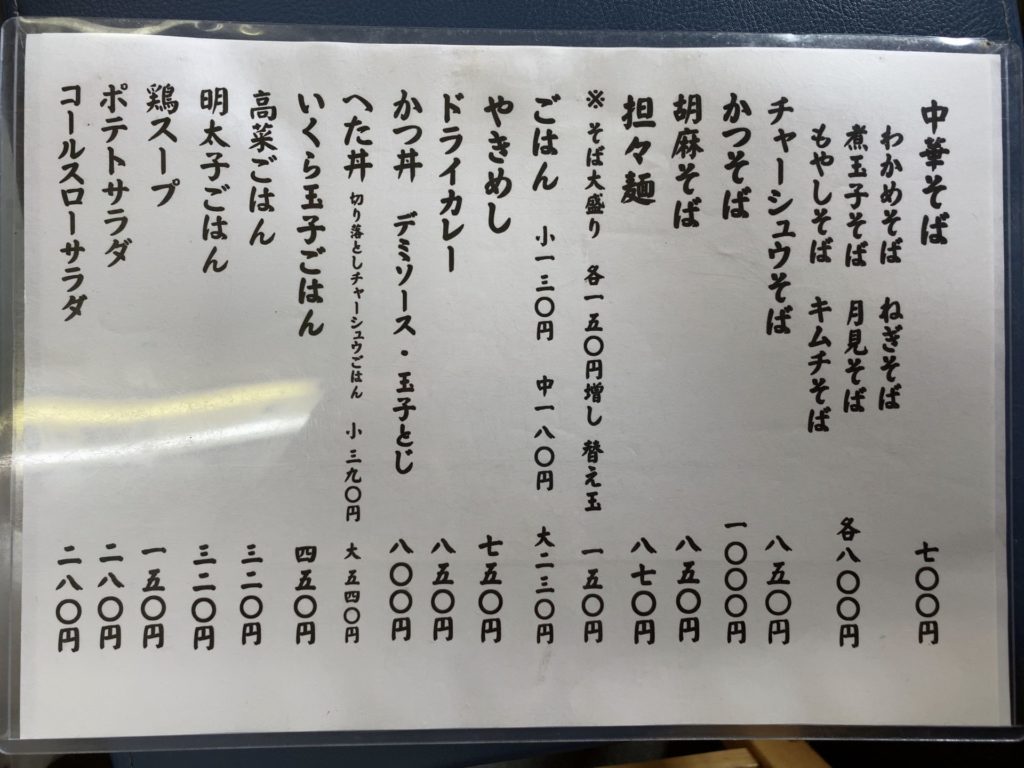 中華そば 七〇〇円
わかめそば ねぎそば
煮玉子そば 月見そば 各八〇〇円
もやしそば キムチそば
チャーシュウそば 八五〇円
かつそば 一〇〇〇円
胡麻そば 八五〇円
担々麺 八七〇円
※ そば大盛り 各一五〇円増し 替え玉 一五〇円
ごはん 小一三〇円 中一八〇円 大二三〇円
やきめし 七五〇円
ドライカレー 八五〇円
かつ丼 デミソース・玉子とじ 八〇〇円
へた丼 切り落としチャーシュウごはん 小 三九〇円 大 五四〇円
いくら玉子ごはん 四五〇円
高菜ごはん 三二〇円
明太子ごはん 三二〇円
鶏スープ 一五〇円
ポテトサラダ 二八〇円
コールスローサラダ 二八〇円